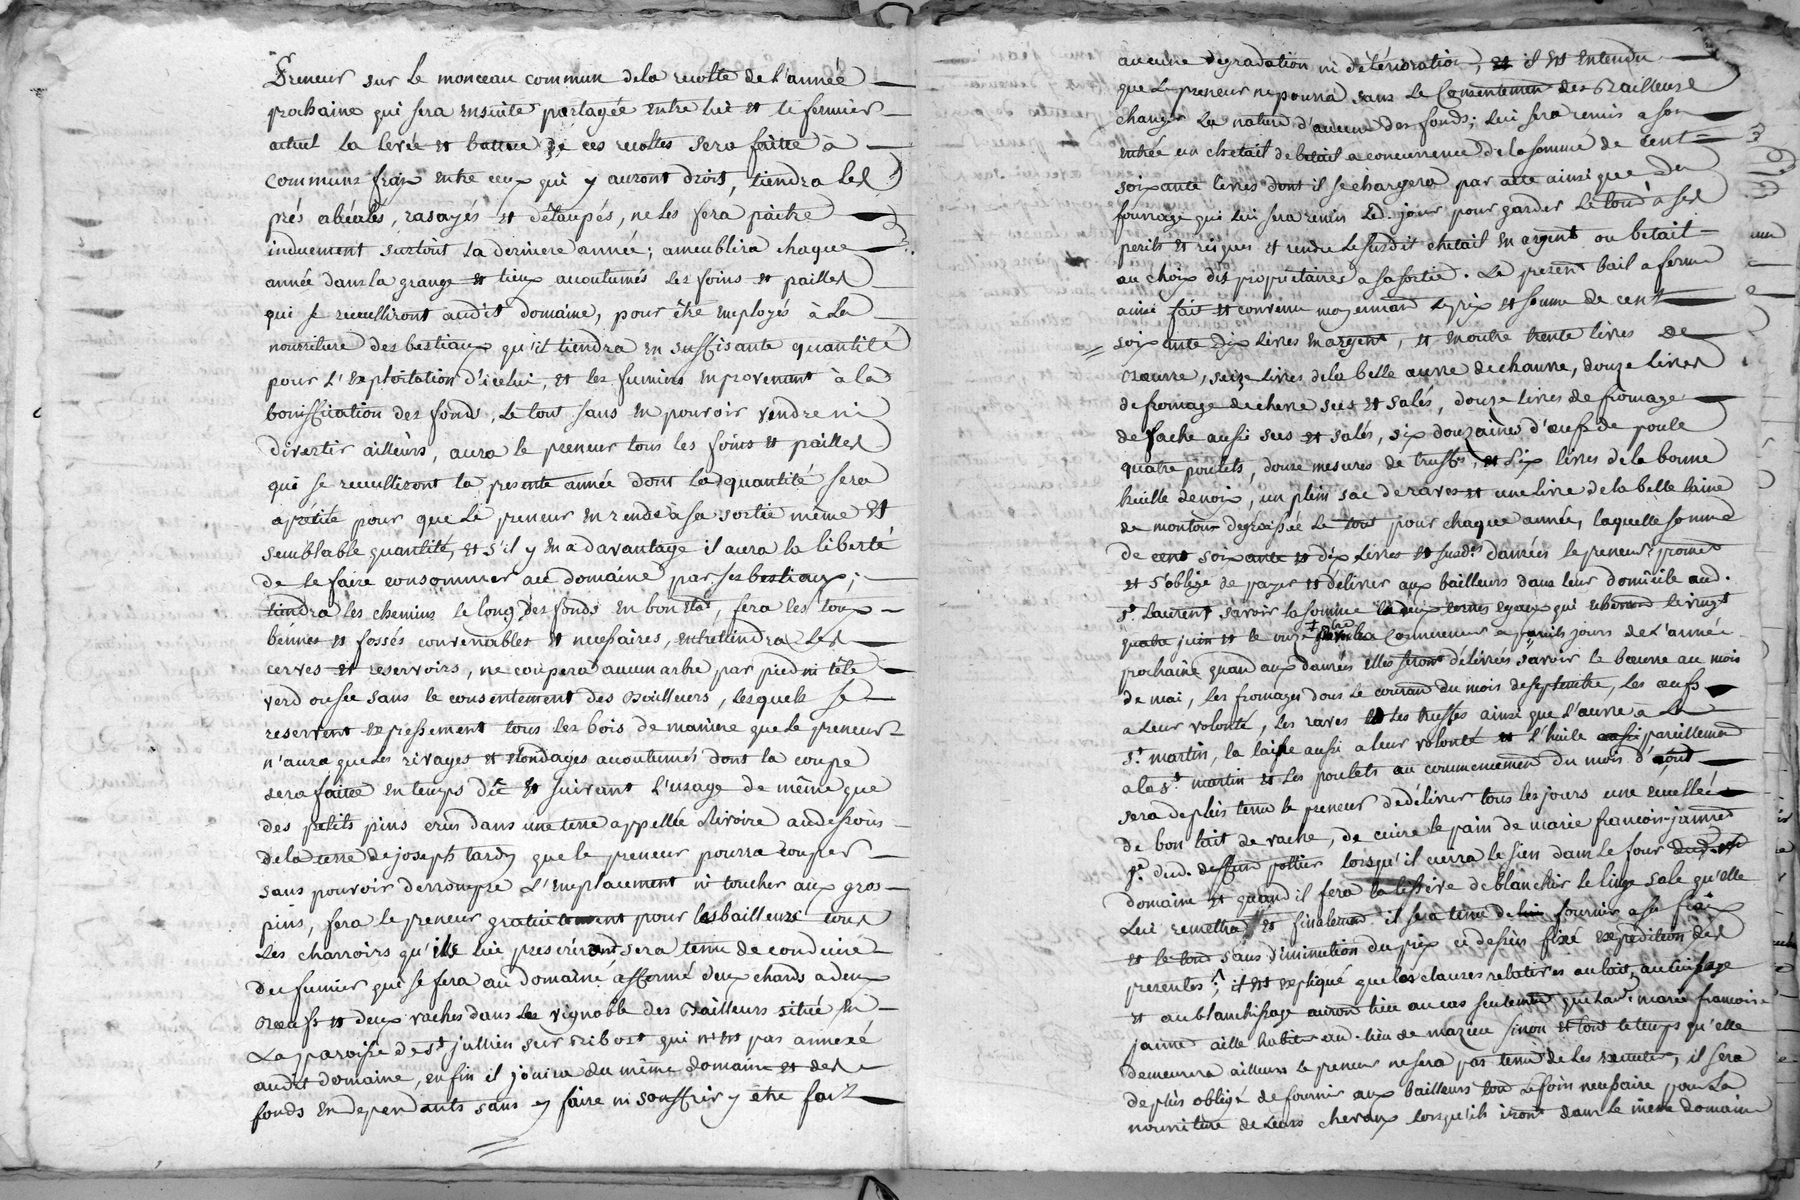 Preneur sur le monceau commun dela recolte de l'année
prochaine qui sera ensuite partagée entre lui et le fermier
actuel la levée et battue de ces recoltes sera faitte à
communs fraix entre ceux qui y auront droit, tiendra les
prés abéalés, rasoyés et détaupés, ne les fera paitre
induement surtout la derniere année; ameublira chaque
année dans la grange et lieux acoutumés les foins et pailles
qui se recuelliront audit domaine, pour être employés à la
nourriture des bestiaux qu'il tiendra en suffisante quantité
pour l'exploitation d'icelui, et les fumiers en provenant à la
boniffication des fonds, le tout sans en pouvoir vendre ni
divertir ailleurs, aura le preneur tous les foins et pailles
qui se recuelliront la presente année dont la quantité sera
apretié pour que le preneur en rende à sa sortie même et
semblable quantité, et s'il y en a davantage il aura la liberté
de le faire consommer au domaine par ses bestiaux;
tiendra les chemins le long des fonds en bon etat, fera les
bennes et fossés convenables et necessaires, entretiendra les
cerves et reservoirs, ne coupera aucun arbre par pied ni tête
verd ou sec sans le consentement des Bailleurs, lesquels se
reservent expressement tous les bois de maniere que le preneur
n'aura que les rivages et élondages acoutumés dont la coupe
sera faitte en temps dû et suivant l'usage de même que
des petits pins crus dans une terre appellée Rivoire audessous
de la terre de joseph tardy que le preneur pourra couper
sans pouvoir derrompre l'emplacement ni toucher aux gros
pins, fera le preneur gratuitement pour les bailleurs tous
les charroirs qu'ils lui prescriront sera tenu de conduire
du fumier qui se fera au domaine afformé deux chards a deux
Bœufs et deux vaches dans le vignoble des Bailleurs situé en
la paroisse de St jullien sur Bibost qui n'est pas annexé
audit domaine, enfin il jouira du même domaine et des
fonds en dependants sans y faire ni souffrir y être fait
aucune degradation ni détérioration, et il est entendu
que le preneur ne pourra sans le Consentement des Bailleurs
changer la nature d'aucun des fonds; lui sera remis a son
entrée un chetail de betail a concurrence de la somme de cent
soixante livres dont il se chargera par acte ainsi que du
fourrage qui lui sera remis led. jour pour garder le tout à ses
perils et risques et rendre le susdit chetail en argent ou betail
au choix des proprietaires a sa sortie. Le present bail a ferme
ainsi fait et convenu moyennant le prix et somme de cent
soixante dix livres en argent, et en outre trente livres de
Bœurre, seize livres de la belle œuvre de chanvre, douze livres
de fromage de chevre secs et salés, douze livres de fromage
de vache aussi secs et salés, six douzaines d'œufs de poule
quatre poulets, douze mesures de truffes, et dix livres de la bonne
huille de noix, un plein sac de raves et une livre de la belle laine
de mouton degraissée le tout pour chaque année, laquelle somme
de cent soixante et dix livres et susdes danrées le preneur promet
et s'oblige de payer et délivrer aux bailleurs dans leur domicile aud.
St Laurent savoir la somme en deux termes egaux qui echeront le vingt
quatre juin et le onze novembre Commencer a pareils jours de l'année
prochaine quand aux danrées elles seront délivrées savoir le bœurre au mois
de mai, les fromages dans le courant du mois de septembre, les œufs
a leur volonté, les raves et les truffes ainsi que l'œuvre a la
St martin, la laine aussi a leur volonté et l'huile pareillement
a la St martin et les poulets au commencement du mois d'aout
sera de plus tenu le preneur de délivrer tous les jours une écuellée
de bon lait de vache, de cuire le pain de marie francoise janne
lorsqu'il cuira le sien dans le four
domaine et quand il fera la lessive de blanchir le linge sale qu'elle
lui remettra et finalement il sera tenu de fournir a ses fraix
et le tout sans diminution du prix ci dessus fixé expedition des
presentes. il est expliqué que les clauses relatives au lait, au cuisage
et au blanchissage auront lieu au cas seulement que lad. marie francoise
janne aille habiter au. lieu de mazieu sinon et tout le temps qu'elle
demeurera ailleurs le preneur ne sera pas tenu de les executer, il sera
de plus obligé de fournir aux bailleurs tout le foin necessaire pour la
nourriture de leurs chevaux lorsqu'ils iront dans le même domaine